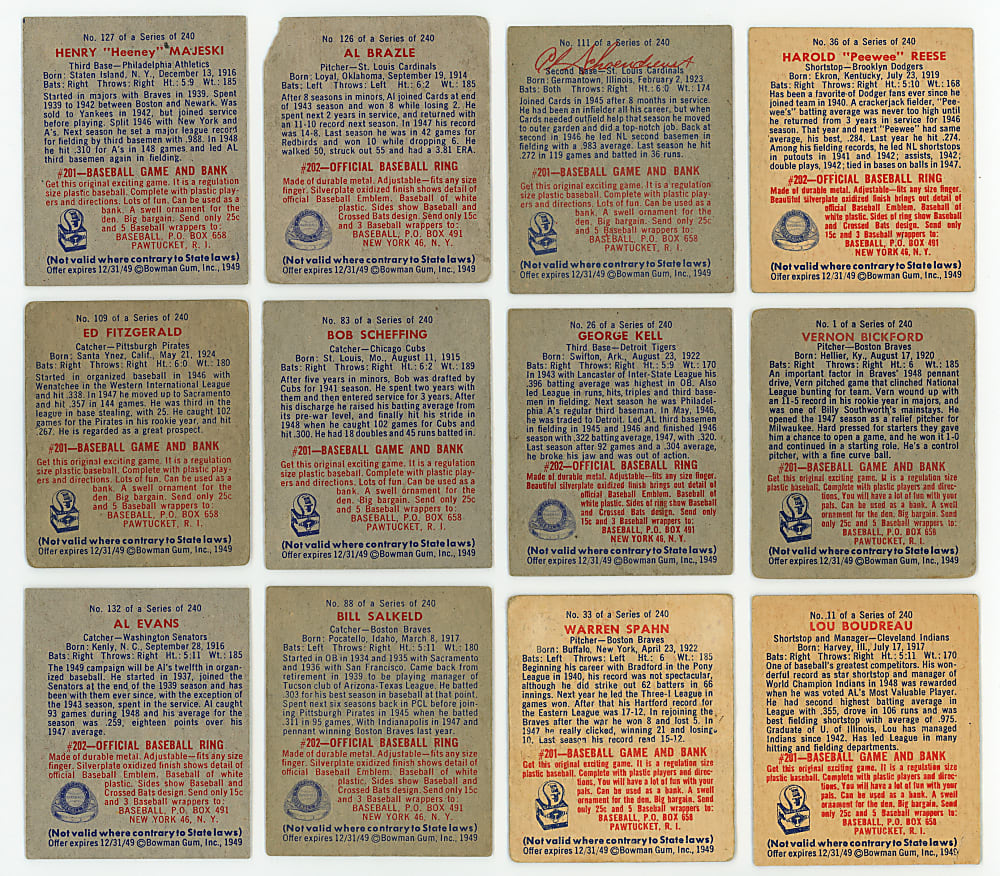 No. 127 of a Series of 240
HENRY "Heeney" MAJESKI
Third Base—Philadelphia Athletics
Born: Staten Island, N. Y., December 13, 1916
Bats: Right Throws: Right Ht.: 5:9 Wt.: 185
Started in majors with Braves in 1939. Spent
1939 to 1942 between Boston and Newark. Was
sold to Yankees in 1942, but joined service
before playing. Split 1946 with New York and
A's. Next season he set a major league record
for fielding by third basemen with .988. In 1948
he hit .310 for A's in 148 games and led AL
third basemen again in fielding.
#201—BASEBALL GAME AND BANK
Get this original exciting game. It is a regulation
size plastic baseball. Complete with plastic play-
ers and directions. Lots of fun. Can be used as a
bank. A swell ornament for the
den. Big bargain. Send only 25c
and 5 Baseball wrappers to:
BASEBALL, P.O. BOX 658
PAWTUCKET, R. I.
(Not valid where contrary to State laws)
Offer expires 12/31/49 ©Bowman Gum, Inc., 1949
No. 126 of a Series of 240
AL BRAZLE
Pitcher—St. Louis Cardinals
Born: Loyal, Oklahoma, September 19, 1914
Bats: Left Throws: Left Ht.: 6:2 Wt.: 185
After 8 seasons in minors, Al joined Cards at end
of 1943 season and won 8 while losing 2. He
spent next 2 years in service, and returned with
an 11-10 record next season. In 1947 his record
was 14-8. Last season he was in 42 games for
Redbirds and won 10 while dropping 6. He
walked 50, struck out 55 and had a 3.81 ERA.
#202—OFFICIAL BASEBALL RING
Made of durable metal. Adjustable—fits any size
finger. Silverplate oxidized finish shows detail of
official Baseball Emblem. Baseball of white
plastic. Sides show Baseball and
Crossed Bats design. Send only 15c
and 3 Baseball wrappers to:
BASEBALL, P.O. BOX 491
NEW YORK 46, N. Y.
(Not valid where contrary to State laws)
Offer expires 12/31/49 ©Bowman Gum, Inc., 1949
No. 111 of a Series of 240
Al Schoendienst
Second Base—St. Louis Cardinals
Born: Germantown, Illinois, February 2, 1923
Bats: Both Throws: Right Ht.: 6:0 Wt.: 174
Joined Cards in 1945 after 8 months in service.
He had been an infielder all his career, but when
Cards needed outfield help that season he moved
to outer garden and did a top-notch job. Back at
second in 1946 he led NL second basemen in
fielding with a .983 average. Last season he hit
.272 in 119 games and batted in 36 runs.
#201—BASEBALL GAME AND BANK
Get this original exciting game. It is a regulation
size plastic baseball. Complete with plastic play-
ers and directions. Lots of fun. Can be used as a
bank. A swell ornament for the
den. Big bargain. Send only 25c
and 5 Baseball wrappers to:
BASEBALL, P.O. BOX 658
PAWTUCKET, R. I.
(Not valid where contrary to State laws)
Offer expires 12/31/49 ©Bowman Gum, Inc., 1949
No. 36 of a Series of 240
HAROLD "Peewee" REESE
Shortstop—Brooklyn Dodgers
Born: Ekron, Kentucky, July 23, 1919
Bats: Right Throws: Right Ht.: 5:10 Wt.: 168
Has been a favorite of Dodger fans ever since he
joined team in 1940. A crackerjack fielder, "Pee-
wee's" batting average was never too high until
he returned from 3 years in service for 1946
season. That year and next "Peewee" had same
average, his best, .284. Last year he hit .274.
Among his fielding records, he led NL shortstops
in putouts in 1941 and 1942; assists, 1942;
double plays, 1942; tied in bases on balls in 1947.
#202—OFFICIAL BASEBALL RING
Made of durable metal. Adjustable—fits any size finger.
Beautiful silverplate oxidized finish brings out detail of
official Baseball Emblem. Baseball of
white plastic. Sides of ring show Baseball
and Crossed Bats design. Send only
15c and 3 Baseball wrappers to:
BASEBALL, P.O. BOX 491
NEW YORK 46, N. Y.
(Not valid where contrary to State laws)
Offer expires 12/31/49 ©Bowman Gum, Inc., 1949
No. 109 of a Series of 240
ED FITZGERALD
Catcher—Pittsburgh Pirates
Born: Santa Ynez, Calif., May 21, 1924
Bats: Right Throws: Right Ht.: 6:0 Wt.: 180
Started in organized baseball in 1946 with
Wenatchee in the Western International League
and hit .338. In 1947 he moved up to Sacramento
and hit .357 in 144 games. He was third in the
league in base stealing, with 25. He caught 102
games for the Pirates in his rookie year, and hit
.267. He is regarded as a great prospect.
#201—BASEBALL GAME AND BANK
Get this original exciting game. It is a regulation
size plastic baseball. Complete with plastic play-
ers and directions. Lots of fun. Can be used as a
bank. A swell ornament for the
den. Big bargain. Send only 25c
and 5 Baseball wrappers to:
BASEBALL, P.O. BOX 658
PAWTUCKET, R. I.
(Not valid where contrary to State laws)
Offer expires 12/31/49 ©Bowman Gum, Inc., 1949
No. 83 of a Series of 240
BOB SCHEFFING
Catcher—Chicago Cubs
Born: St. Louis, Mo., August 11, 1915
Bats: Right Throws: Right Ht.: 6:2 Wt.: 189
After five years in minors, Bob was drafted by
Cubs for 1941 season. He spent two years with
them and then entered service for 3 years. After
his discharge he raised his batting average from
its pre-war level, and finally hit his stride in
1948 when he caught 102 games for Cubs and
hit .300. He had 18 doubles and 45 runs batted in.
#201—BASEBALL GAME AND BANK
Get this original exciting game. It is a regulation
size plastic baseball. Complete with plastic play-
ers and directions. Lots of fun. Can be used as a
bank. A swell ornament for the
den. Big bargain. Send only 25c
and 5 Baseball wrappers to:
BASEBALL, P.O. BOX 658
PAWTUCKET, R. I.
(Not valid where contrary to State laws)
Offer expires 12/31/49 ©Bowman Gum, Inc., 1949
No. 26 of a Series of 240
GEORGE KELL
Third Base—Detroit Tigers
Born: Swifton, Ark., August 23, 1922
Bats: Right Throws: Right Ht.: 5:9 Wt.: 170
In 1943 with Lancaster of Inter-State League his
.396 batting average was highest in OB. Also
led League in runs, hits, triples and third base-
men in fielding. Next season he was Philadel-
phia A's regular third baseman. In May, 1946,
he was traded to Detroit. Led AL third basemen
in fielding in 1945 and 1946 and finished 1946
season with .322 batting average, 1947, with .320.
Last season after 92 games and a .304 average,
he broke his jaw and was out of action.
#202—OFFICIAL BASEBALL RING
Made of durable metal. Adjustable—fits any size finger.
Beautiful silverplate oxidized finish brings out detail of
official Baseball Emblem. Baseball of
white plastic. Sides of ring show Baseball
and Crossed Bats design. Send only
15c and 3 Baseball wrappers to:
BASEBALL, P.O. BOX 491
NEW YORK 46, N. Y.
(Not valid where contrary to State laws)
Offer expires 12/31/49 ©Bowman Gum, Inc., 1949
No. 1 of a Series of 240
VERNON BICKFORD
Pitcher—Boston Braves
Born: Hellier, Ky., August 17, 1920
Bats: Right Throws: Right Ht.: 6 Wt.: 185
An important factor in Braves' 1948 pennant
drive, Vern pitched game that clinched National
League bunting for team. Vern wound up with
an 11-5 record in his rookie year in majors, and
was one of Billy Southworth's mainstays. He
opened the 1947 season as a relief pitcher for
Milwaukee. Hard pressed for starters they gave
him a chance to open a game, and he won it 1-0
and continued in a starting role. He's a control
pitcher, with a fine curve ball.
#201—BASEBALL GAME AND BANK
Get this original exciting game. It is a regulation size
plastic baseball. Complete with plastic players and direc-
tions. You will have a lot of fun with your
pals. Can be used as a bank. A swell
ornament for the den. Big bargain. Send
only 25c and 5 Baseball wrappers to:
BASEBALL, P.O. BOX 658
PAWTUCKET, R. I.
(Not valid where contrary to State laws)
Offer expires 12/31/49 ©Bowman Gum, Inc., 1949
No. 132 of a Series of 240
AL EVANS
Catcher—Washington Senators
Born: Kenly, N. C., September 28, 1916
Bats: Right Throws: Right Ht.: 5:11 Wt.: 185
The 1949 campaign will be Al's twelfth in organ-
ized baseball. He started in 1937, joined the
Senators at the end of the 1939 season and has
been with them ever since, with the exception of
the 1943 season, spent in the service. Al caught
93 games during 1948 and his average for the
season was .259, eighteen points over his
1947 average.
#202—OFFICIAL BASEBALL RING
Made of durable metal. Adjustable—fits any size
finger. Silverplate oxidized finish shows detail of
official Baseball Emblem. Baseball of white
plastic. Sides show Baseball and
Crossed Bats design. Send only 15c
and 3 Baseball wrappers to:
BASEBALL, P.O. BOX 491
NEW YORK 46, N. Y.
(Not valid where contrary to State laws)
Offer expires 12/31/49 ©Bowman Gum, Inc., 1949
No. 88 of a Series of 240
BILL SALKELD
Catcher—Boston Braves
Born: Pocatello, Idaho, March 8, 1917.
Bats: Left Throws: Right Ht.: 5:11 Wt.: 180
Started in OB in 1934 and 1935 with Sacramento
and 1936 with San Francisco. Came back from
retirement in 1939 to be playing manager of
Tucson club of Arizona-Texas League. He batted
.303 for his best season in baseball at that point.
Spent next six seasons back in PCL before join-
ing Pittsburgh Pirates in 1945 when he batted
.311 in 95 games. With Indianapolis in 1947 and
pennant winning Boston Braves last year.
#202—OFFICIAL BASEBALL RING
Made of durable metal. Adjustable—fits any size
finger. Silverplate oxidized finish shows detail of
official Baseball Emblem. Baseball of white
plastic. Sides show Baseball and
Crossed Bats design. Send only 15c
and 3 Baseball wrappers to:
BASEBALL, P.O. BOX 491
NEW YORK 46, N. Y.
(Not valid where contrary to State laws)
Offer expires 12/31/49 ©Bowman Gum, Inc., 1949
No. 33 of a Series of 240
WARREN SPAHN
Pitcher—Boston Braves
Born: Buffalo, New York, April 23, 1922
Bats: Left Throws: Left Ht.: 6 Wt.: 185
Beginning his career with Bradford in the Pony
League in 1940, his record was not spectacular,
although he did strike out 62 batters in 66
innings. Next year he led the Three-I League in
games won. After that his Hartford record for
the Eastern League was 17-12. In rejoining the
Braves after the war he won 8 and lost 5. In
1947 he really clicked, winning 21 and losing
10. Last season his record read 15-12.
#201—BASEBALL GAME AND BANK
Get this original exciting game. It is a regulation size
plastic baseball. Complete with plastic players and direc-
tions. You will have a lot of fun with your
pals. Can be used as a bank. A swell
ornament for the den. Big bargain. Send
only 25c and 5 Baseball wrappers to:
BASEBALL, P.O. BOX 658
PAWTUCKET, R. I.
(Not valid where contrary to State laws)
Offer expires 12/31/49 ©Bowman Gum, Inc., 1949
No. 11 of a Series of 240
LOU BOUDREAU
Shortstop and Manager—Cleveland Indians
Born: Harvey, Ill., July 17, 1917
Bats: Right Throws: Right Ht.: 5:11 Wt.: 170
One of baseball's greatest competitors. His won-
derful record as star shortstop and manager of
World Champion Indians in 1948 was rewarded
when he was voted AL's Most Valuable Player.
He had second highest batting average in
League with .355, drove in 106 runs and was
best fielding shortstop with average of .975.
Graduate of U. of Illinois, Lou has managed
Indians since 1942. Has led League in many
hitting and fielding departments.
#201—BASEBALL GAME AND BANK
Get this original exciting game. It is a regulation size
plastic baseball. Complete with plastic players and direc-
tions. You will have a lot of fun with your
pals. Can be used as a bank. A swell
ornament for the den. Big bargain. Send
only 25c and 5 Baseball wrappers to:
BASEBALL, P.O. BOX 658
PAWTUCKET, R. I.
(Not valid where contrary to State laws)
Offer expires 12/31/49 ©Bowman Gum, Inc., 1949